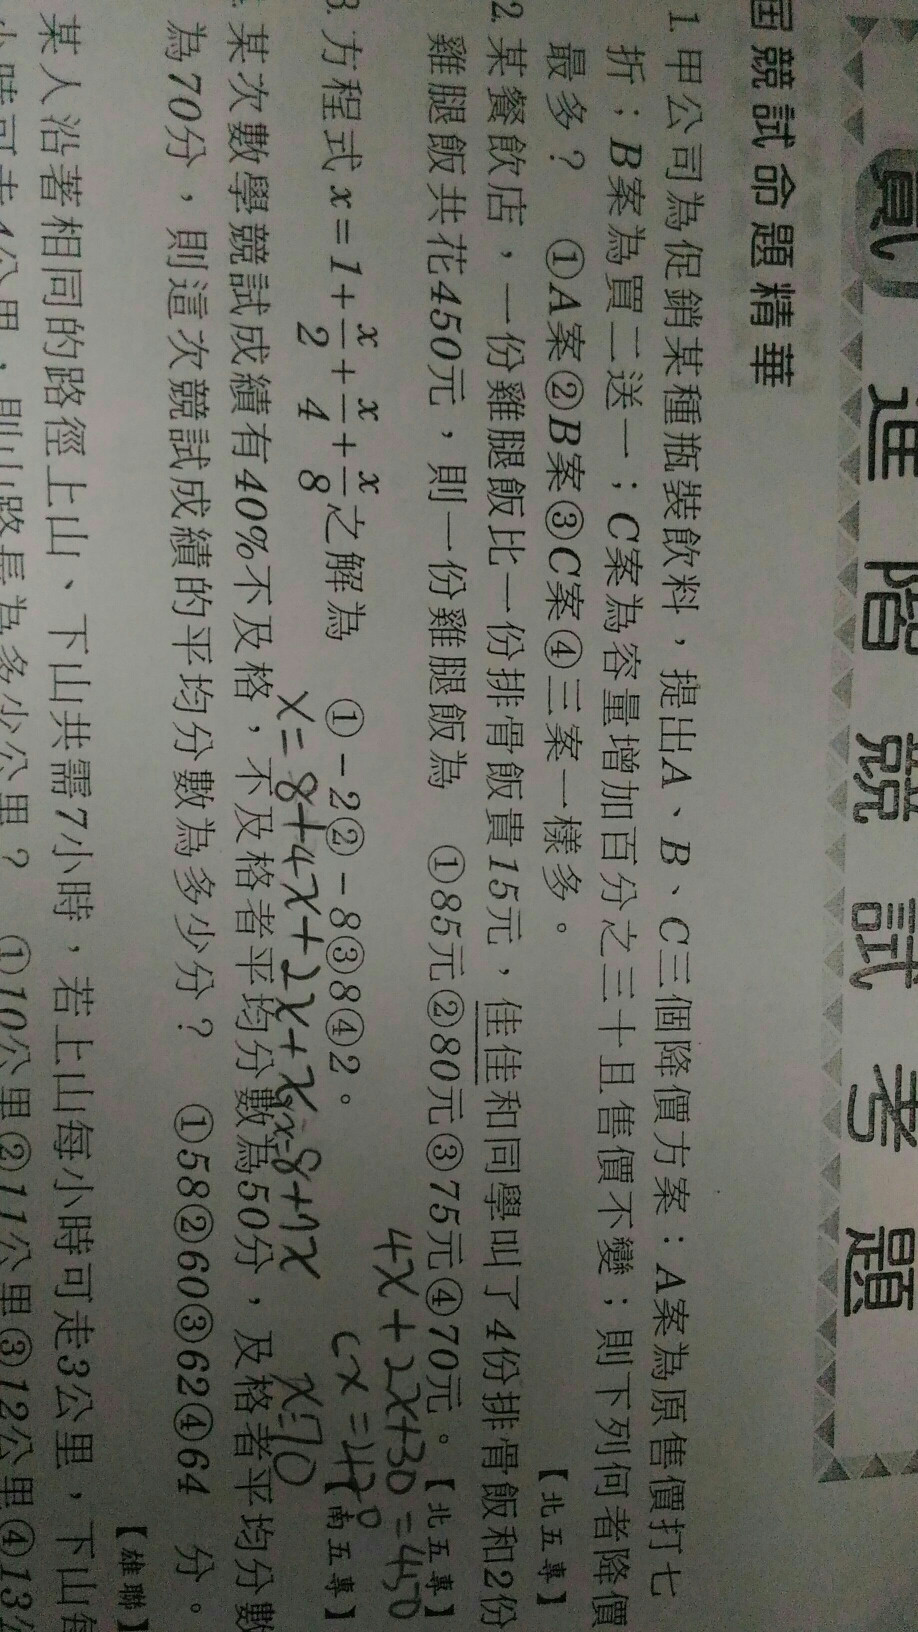 貳 進階競試考題
屆競試命題精華
1.甲公司為促銷某種瓶裝飲料，提出A、B、C三個降價方案：A案為原售價打七
折；B案為買二送一；C案為容量增加百分之三十且售價不變；則下列何者降價
最多？ ①A案②B案③C案④三案一樣多。 【北五專】
2.某餐飲店，一份雞腿飯比一份排骨飯貴15元，佳佳和同學叫了4份排骨飯和2份
雞腿飯共花450元，則一份雞腿飯為 ①85元②80元③75元④70元。 【北五專】
4x+2x+30=450
3.方程式x=1+x/2+x/4+x/8之解為 ①-2②-8③8④2。 【南五專】
6x=420
x=70
x=8+4x+2x+x 8x=8+7x
某次數學競試成績有40%不及格，不及格者平均分數為50分，及格者平均分數
為70分，則這次競試成績的平均分數為多少分？ ①58②60③62④64 分。
【雄聯】
某人沿著相同的路徑上山、下山共需7小時，若上山每小時可走3公里，下山每
小時可走4公里，則山路長為多少公里？ ①10公里②11公里③12公里④13公